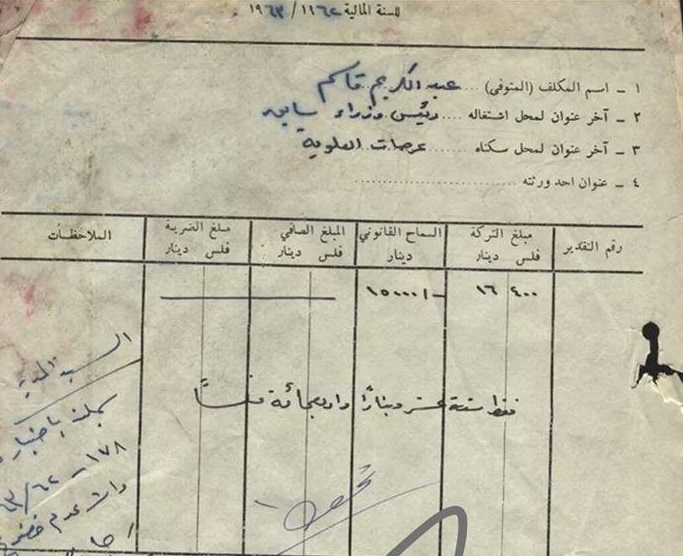 للسنة المالية ١٩٦٢/١٩٦٣
١ - اسم المكلف (المتوفى) .... عبد الكريم قاسم
٢ - آخر عنوان لمحل اشتغاله .... رئيس وزراء سابق
٣ - آخر عنوان لمحل سكناه ........ عرصات العلوية
٤ - عنوان احد ورثته ........................
رقم التقدير مبلغ التركة السماح القانوني المبلغ الصافي مبلغ الضريبة الملاحظات
فلس دينار دينار فلس دينار فلس دينار
٤٠٠ ١٦ ١٥٠٠٠/-
السيد
فقط ستة عشر ديناراً واربعمائة فلساً
١٧٨
٦٢/
وان عدم